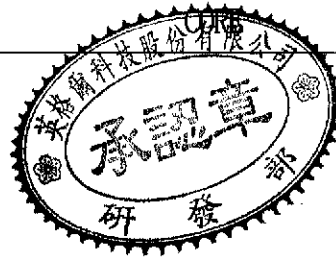 CORE
英格爾科技股份有限公司
承認章
研發部